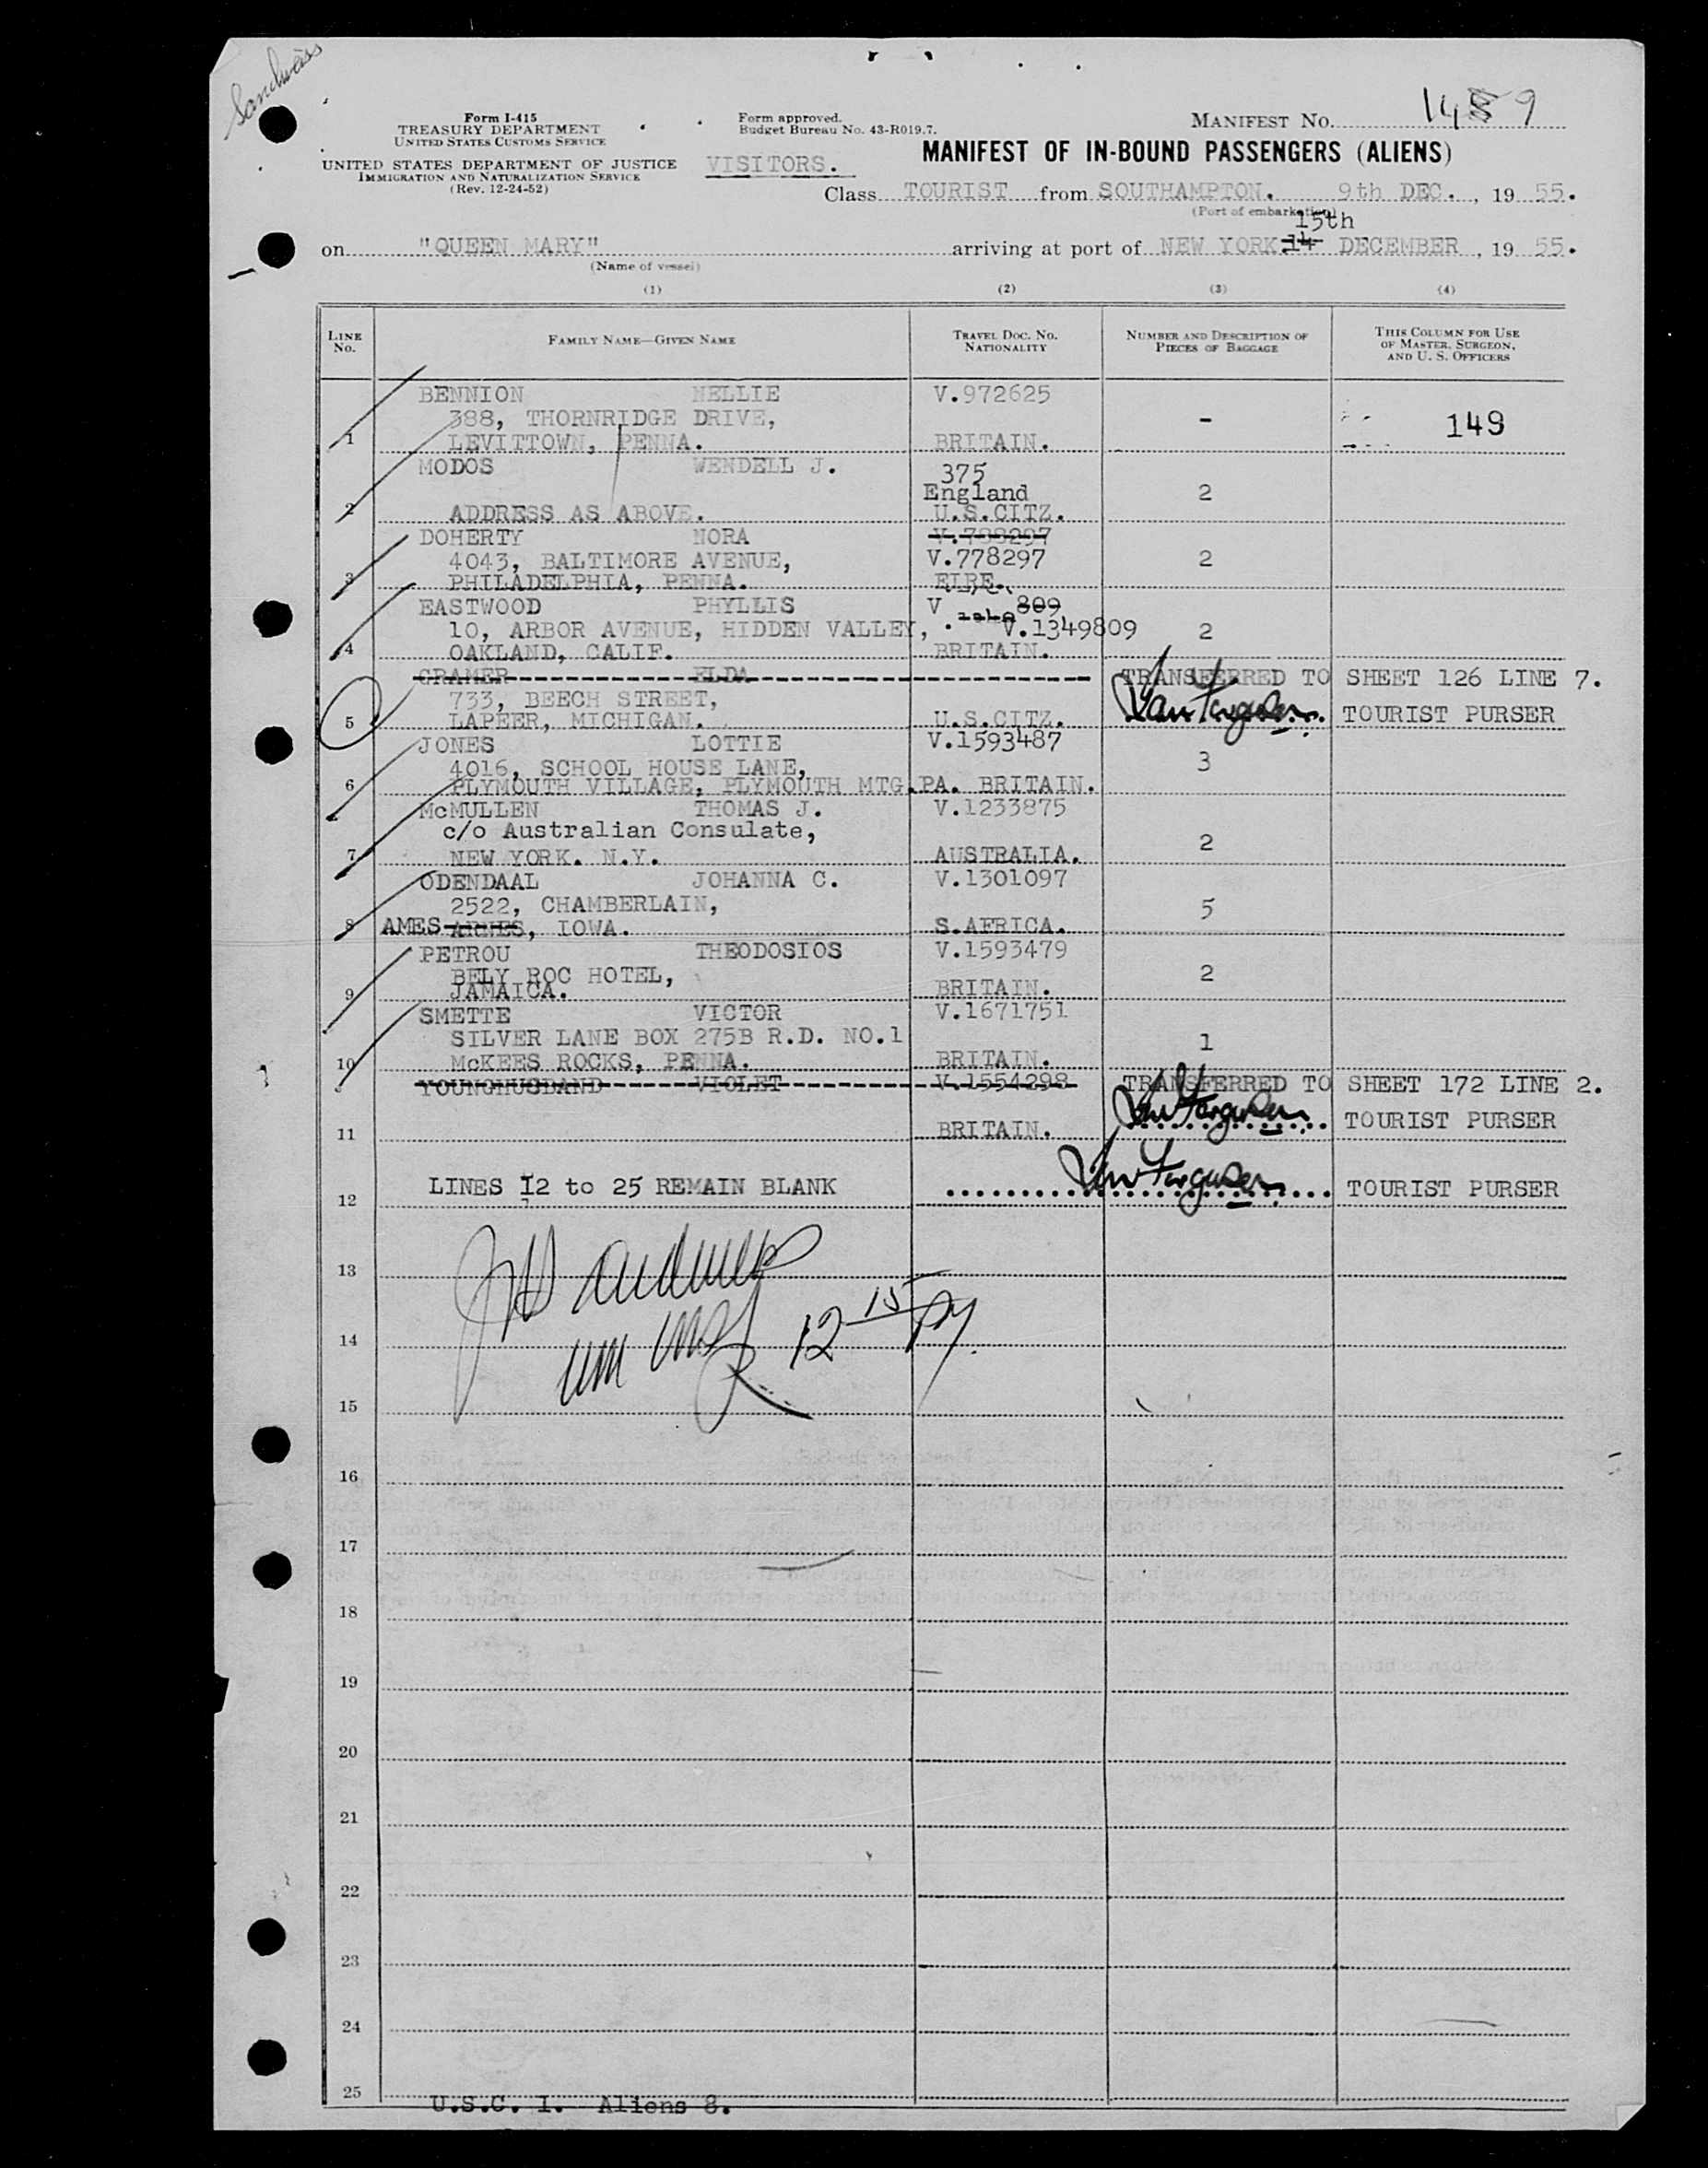 Sandweiss
Form I-415
TREASURY DEPARTMENT
UNITED STATES CUSTOMS SERVICE
UNITED STATES DEPARTMENT OF JUSTICE
IMMIGRATION AND NATURALIZATION SERVICE
(Rev. 12-24-52)
Form approved.
Budget Bureau No. 43-R019.7.
VISITORS.
MANIFEST No. 1489
MANIFEST OF IN-BOUND PASSENGERS (ALIENS)
Class TOURIST from SOUTHAMPTON. 9th DEC., 1955.
(Port of embarkation)
15th
on "QUEEN MARY" arriving at port of NEW YORK 14 DECEMBER, 1955.
(Name of vessel)
(1) (2) (3) (4)
LINE No. FAMILY NAME—GIVEN NAME TRAVEL DOC. NO. NATIONALITY NUMBER AND DESCRIPTION OF PIECES OF BAGGAGE THIS COLUMN FOR USE OF MASTER, SURGEON, AND U. S. OFFICERS
BENNION NELLIE V.972625
388, THORNRIDGE DRIVE, - 149
1 LEVITTOWN, PENNA. BRITAIN.
MODOS WENDELL J. 375
England 2
2 ADDRESS AS ABOVE. U.S.CITZ.
DOHERTY NORA V.788297
4043, BALTIMORE AVENUE, V.778297 2
3 PHILADELPHIA, PENNA. EIRE.
EASTWOOD PHYLLIS V 809
10, ARBOR AVENUE, HIDDEN VALLEY, V.1349809 2
4 OAKLAND, CALIF. BRITAIN.
CRAMER ELDA TRANSFERRED TO SHEET 126 LINE 7.
733, BEECH STREET,
5 LAPEER, MICHIGAN. U.S.CITZ. Ian Ferguson TOURIST PURSER
JONES LOTTIE V.1593487
4016, SCHOOL HOUSE LANE, 3
6 PLYMOUTH VILLAGE, PLYMOUTH MTG.PA. BRITAIN.
McMULLEN THOMAS J. V.1233875
c/o Australian Consulate, 2
7 NEW YORK. N.Y. AUSTRALIA.
ODENDAAL JOHANNA C. V.1301097
2522, CHAMBERLAIN, 5
8 AMES ARNES, IOWA. S.AFRICA.
PETROU THEODOSIOS V.1593479
BELY ROC HOTEL, 2
9 JAMAICA. BRITAIN.
SMETTE VICTOR V.1671751
SILVER LANE BOX 275B R.D. NO.1 1
10 McKEES ROCKS, PENNA. BRITAIN.
YOUNGHUSBAND VIOLET V.1554298 TRANSFERRED TO SHEET 172 LINE 2.
Ian Ferguson TOURIST PURSER
11 BRITAIN.
LINES 12 to 25 REMAIN BLANK Ian Ferguson TOURIST PURSER
12
13
12 15
14
15
16
17
18
19
20
21
22
23
24
25
U.S.C. 1. Aliens 8.